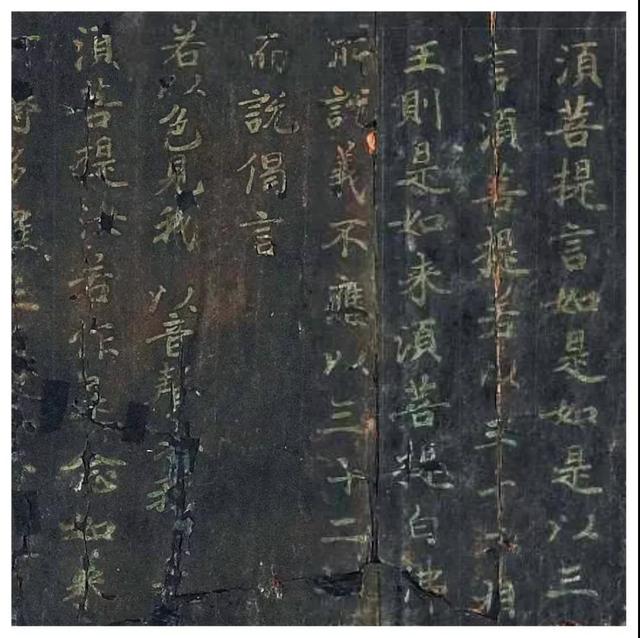 須菩提言如是如是以三
言須菩提若以三十二相
王則是如来須菩提白佛
所說義不應以三十二
而說偈言
若以色見我 以音聲求我
須菩提汝若作是念如来
耨多羅三